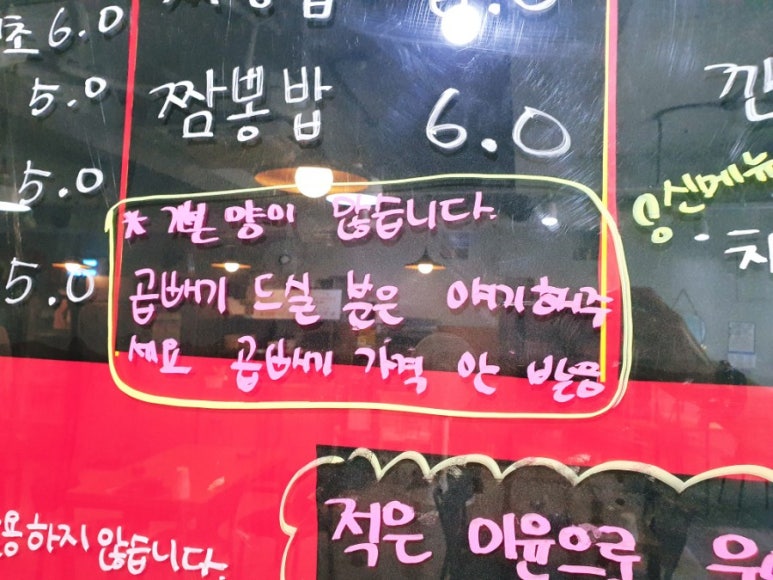 초 6.0
5.0
5.0
5.0
밥 6.0
짬뽕밥 6.0
* 기본 양이 많습니다.
곱빼기 드실 분은 얘기해주
세요 곱빼기 가격 안 받음
신메뉴
용하지 않습니다.
적은 이윤으로